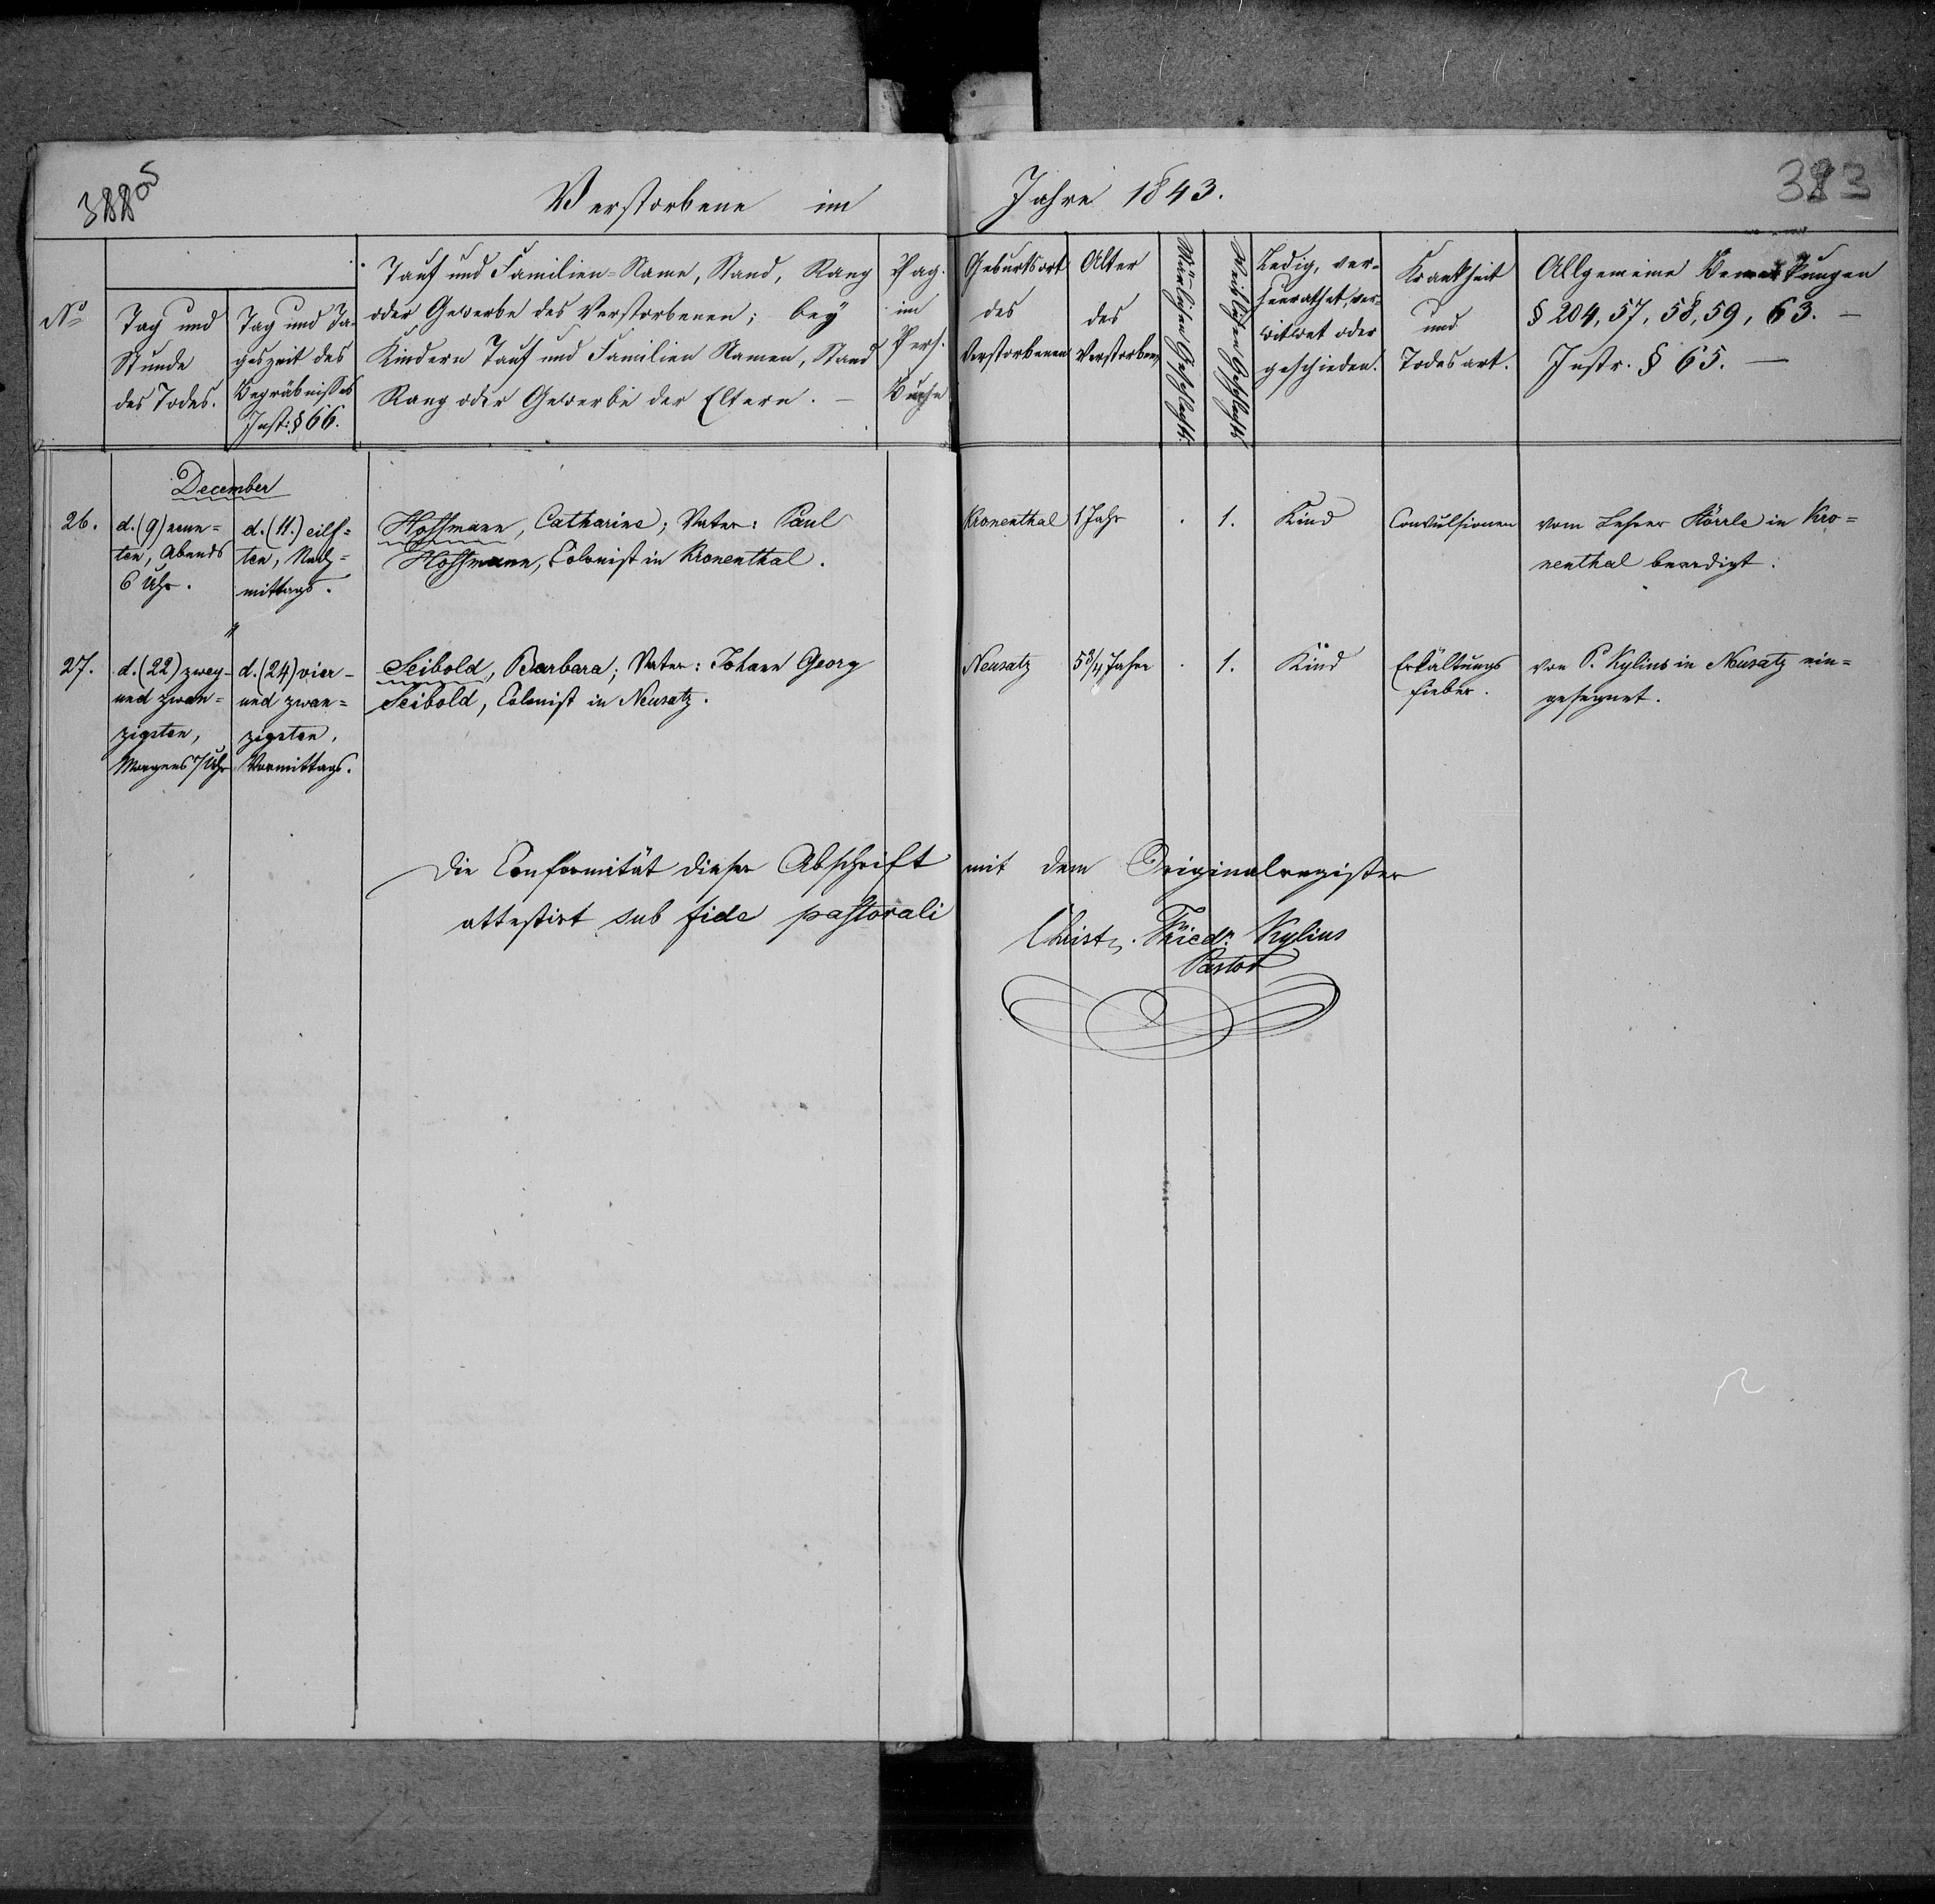 Verstorbene im Jahre 1843.
383
No
Tag und
Stunde
des Todes.
Tag und Ta-
geszeit des
Begräbnißes
Inst: § 66.
Tauf und Familien-Name, Stand, Rang
oder Gewerbe des Verstorbenen; bey
Kindern Tauf und Familien Namen, Stand
Rang oder Gewerbe der Eltern. —
Pag.
im
Pers.
Buche
Geburtsort
des
Verstorbenen
Alter
des
Verstorbenen
Männlichen Geschlechts.
Weiblichen Geschlechts
Ledig, ver-
heurathet, ver-
witwet oder
geschieden.
Krankheit
und
Todesart.
Allgemeine Bemerkungen
§ 204, 57, 58, 59, 63. —
Instr. § 65. —
December
26.
d. (9) neun=
ten, Abends
6 Uhr.
d. (11.) eilf=
ten, Nach=
mittags.
Hoffmann, Catharine; Vater: Paul
Hoffmann, Colonist in Kronenthal.
Kronenthal
1 Jahr
.
1.
Kind
Convulsionen
vom Lehrer Störrle in Kro=
nenthal beerdigt.
27.
d. (22) zwey-
und zwan=
zigsten,
Morgens 7 Uhr
d. (24) vier-
und zwan=
zigsten,
Vormittags.
Seibold, Barbara; Vater: Johann Georg
Seibold, Colonist in Neusatz.
Neusatz
5 3/4 Jahre
.
1.
Kind
Erkältungs
fieber.
von P. Kylius in Neusatz ein=
gesegnet.
Die Conformität dieser Abschrift mit dem Originalregister
attestirt sub fide pastorali
Christ. Friedr. Kylius
Pastor